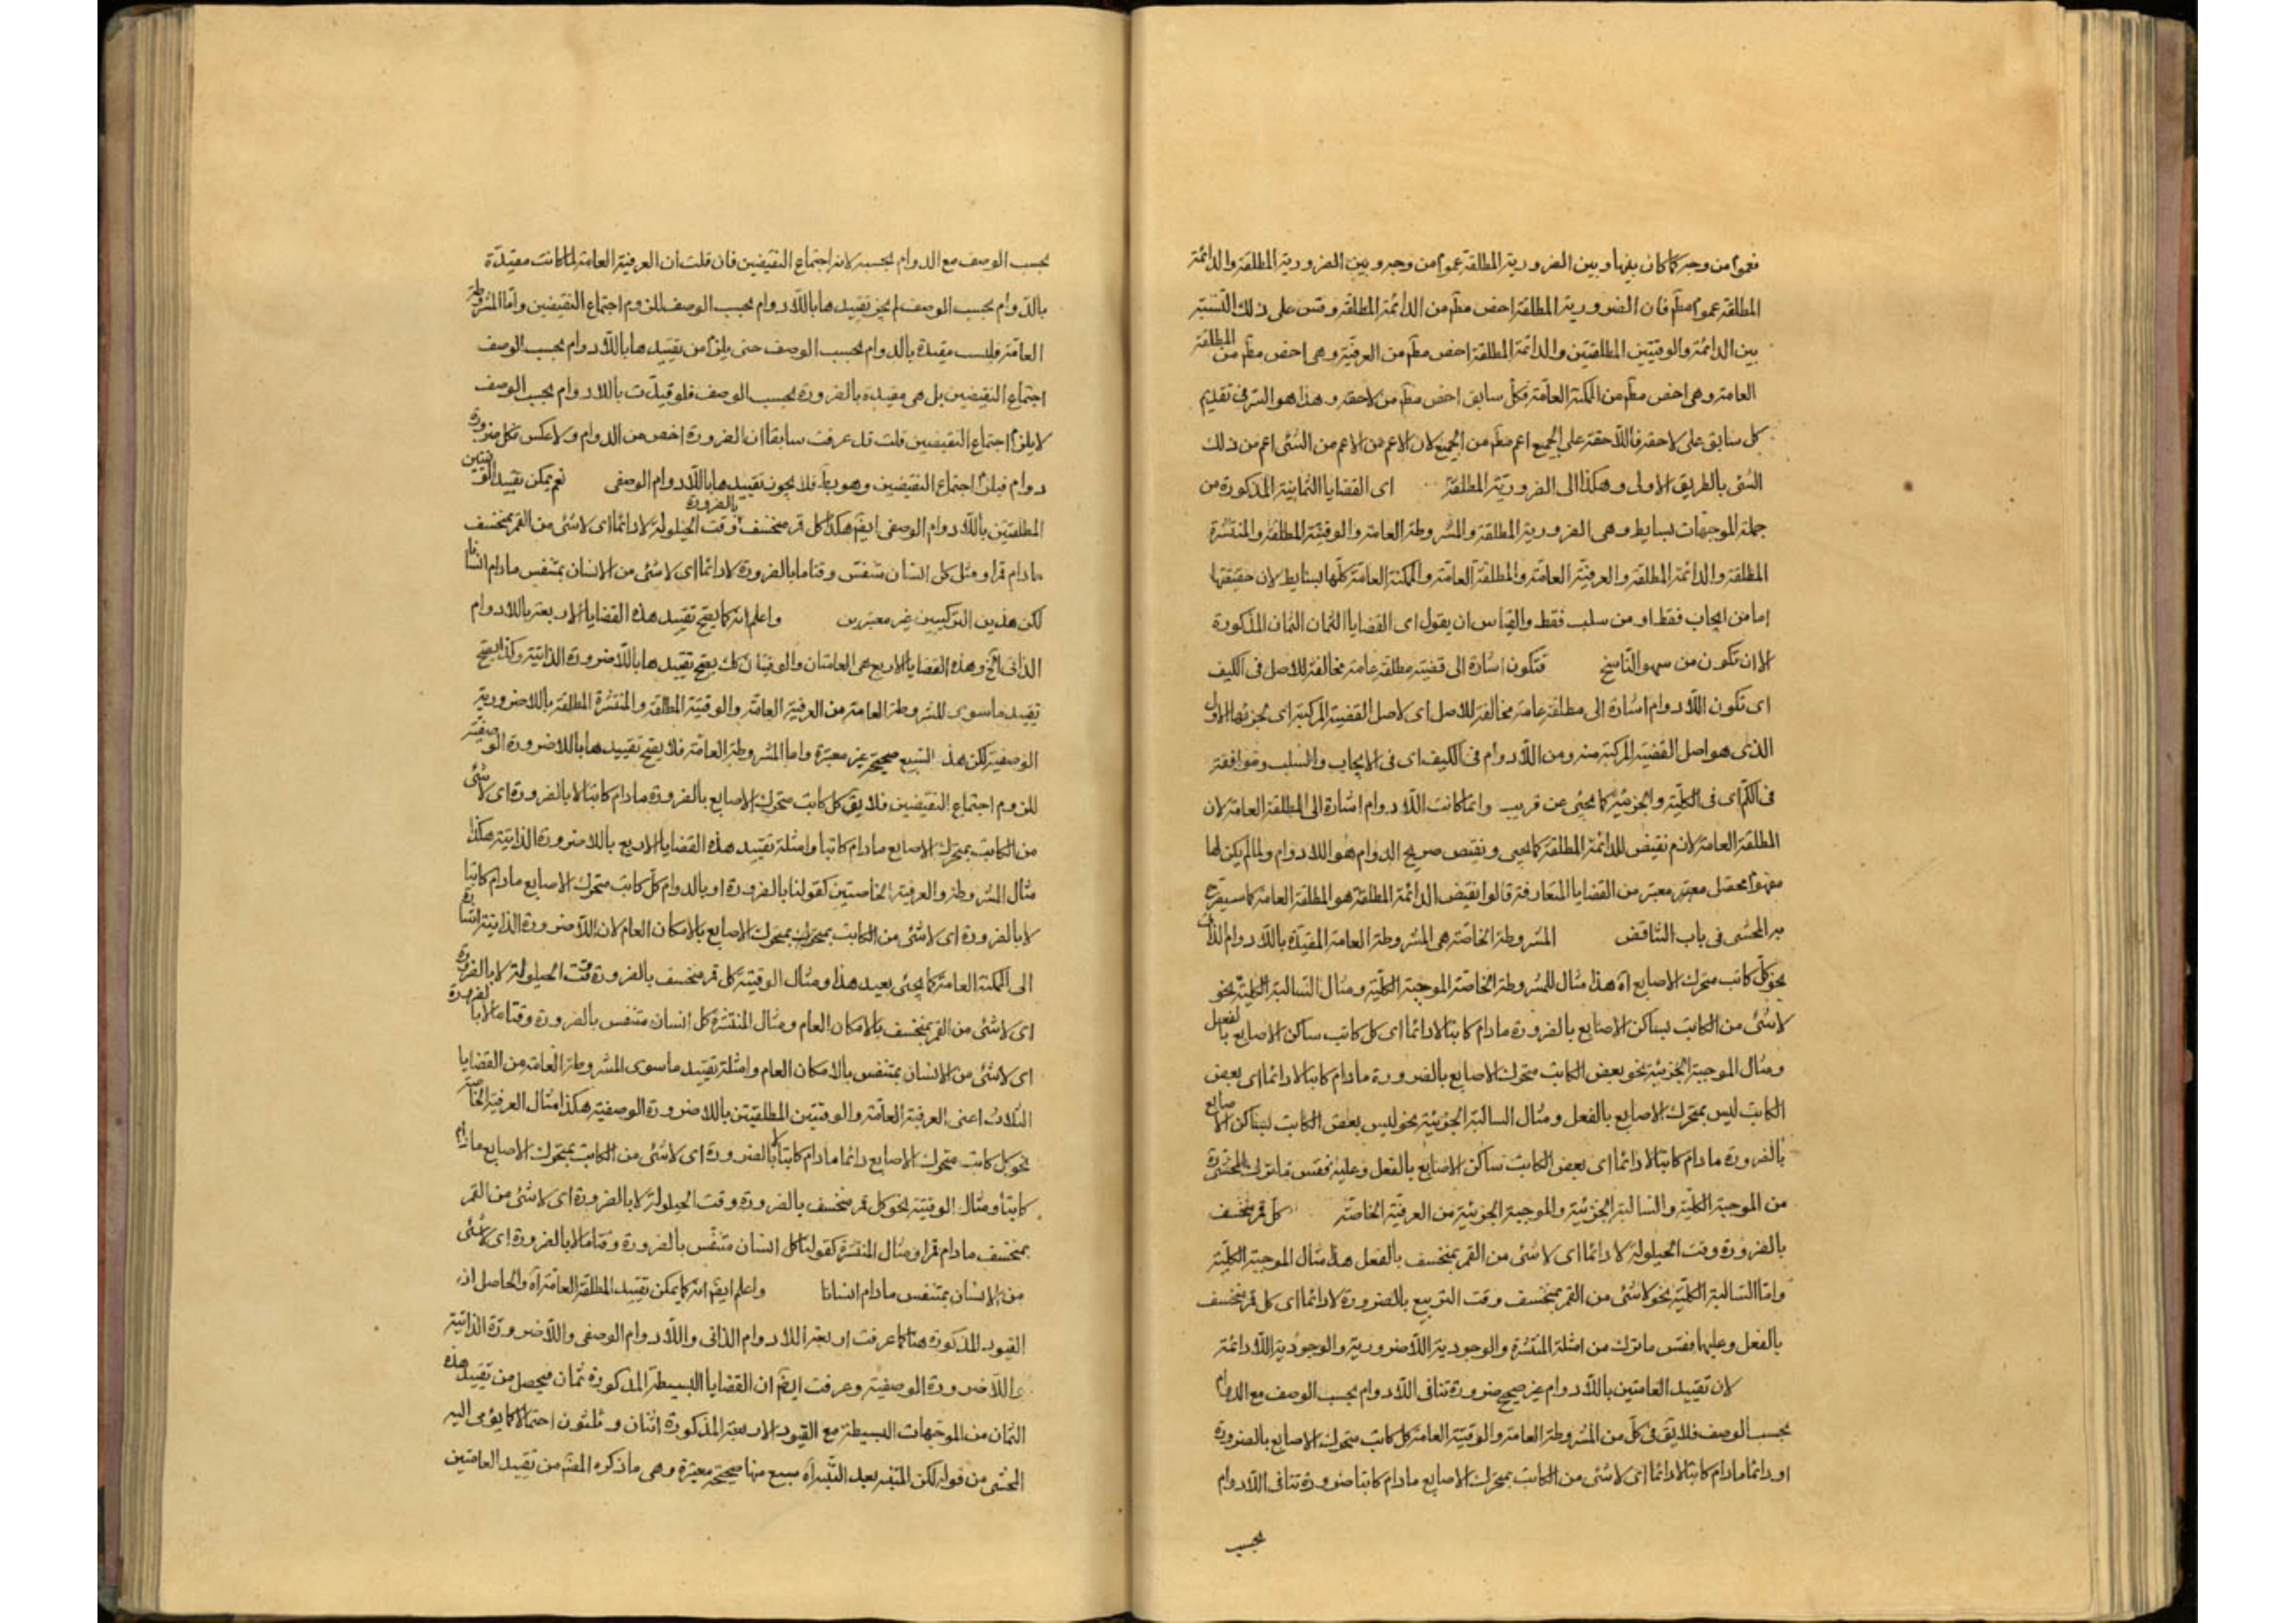 فعموم من وجه كما كان بينها وبين الضرورية المطلقة عموم من وجه وبين الضرورية المطلقة والدائمة
المطلقة عموم مطم فان الضرورية المطلقة اخص مطم من الدائمة المطلقة وقس على ذلك النسبة
بين الدائمة والوقتيتين المطلقتين والدائمة المطلقة اخص مطم من العرفية وهى اخص مطم من المطلقة
العامة وهى اخص مطم من الممكنة العامة فكل سابق اخص مطم من لاحقه وهذا هو السر فى تقديم
كل سابق على لاحقه فاللاحقة على الجميع اعم مطم من الجميع لان الاعم من الاعم من الشئ اعم من ذلك
الشئ بالطريق الاولى وهكذا الى الضرورية المطلقة اى القضايا الثمانية المذكورة من
جملة الموجهات بسايط وهى الضرورية المطلقة والمشروطة العامة والوقتية المطلقة والمنتشرة
المطلقة والدائمة المطلقة والعرفية العامة والمطلقة العامة والممكنة العامة كلها بسايط لان حقيقتها
اما من ايجاب فقط او من سلب فقط والقياس ان يقول اى القضايا الثمان الثمان المذكورة
الا ان تكون من سهو الناسخ فتكون اشارة الى قضية مطلقة عامة مخالفة للاصل فى الكيف
اى تكون اللادوام اشارة الى مطلقة عامة مخالفة للاصل اى لاصل القضية المركبة اى لجزئها الاول
الذى هو اصل القضية المركبة منه ومن اللادوام فى الكيف اى فى الايجاب والسلب وموافقة
فى الكم اى فى الكلية والجزئية كما يجئ عن قريب وانما كانت اللادوام اشارة الى المطلقة العامة لان
المطلقة العامة لازم نقيض للدائمة المطلقة كما يجيى ونقيض صريح الدوام هو اللادوام ولما لم يكن لها
مفهوم محصل معتبر معتبر من القضايا المتعارفة قالوا نقيض الدائمة المطلقة هو المطلقة العامة كما سيصرح
به المحشى فى باب التناقض المشروطة الخاصة هى المشروطة العامة المقيدة باللادوام الذاتى
نحو كل كاتب متحرك الاصابع اه هذا مثال للمشروطة الخاصة الموجبة الكلية ومثال السالبة الكلية نحو
لاشئ من الكاتب بساكن الاصابع بالضرورة مادام كاتبا لا دائما اى كل كاتب ساكن الاصابع بالفعل
ومثال الموجبة الجزئية نحو بعض الكاتب متحرك الاصابع بالضرورة مادام كاتبا لا دائما اى بعض
الكاتب ليس بمتحرك الاصابع بالفعل ومثال السالبة الجزئية نحو ليس بعض الكاتب بساكن الاصابع
بالضرورة مادام كاتبا لا دائما اى بعض الكاتب ساكن الاصابع بالفعل وعليه فقس ما ترك المحشى
من الموجبة الكلية والسالبة الجزئية والموجبة الجزئية من العرفية الخاصة كل قمر منخسف
بالضرورة وقت الحيلولة لا دائما اى لا شئ من القمر بمنخسف بالفعل هذا مثال الموجبة الكلية
واما السالبة الكلية نحو لا شئ من القمر بمنخسف وقت التربيع بالضرورة لا دائما اى كل قمر منخسف
بالفعل وعليها فقس ما ترك من امثلة المنتشرة والوجودية اللاضرورية والوجودية اللادائمة
لان تقييد العامتين باللادوام غير صحيح ضرورة تنافى اللادوام بحسب الوصف مع الدوام
بحسب الوصف فلا يق فى كل من المشروطة العامة والوقتية العامة كل كاتب متحرك الاصابع بالضرورة
او دائما مادام كاتبا لا دائما اى لا شئ من الكاتب بمتحرك الاصابع مادام كاتبا ضرورة تنافى اللادوام
بحسب
بحسب الوصف مع الدوام بحسبه لانه اجتماع النقيضين فان قلت ان العرفية العامة لما كانت مقيدة
بالدوام بحسب الوصف لم يجز تقييدها باللادوام بحسب الوصف للزوم اجتماع النقيضين واما المشروطة
العامة وليست مقيدة بالدوام بحسب الوصف حتى يلزم من تقييدها باللادوام بحسب الوصف
اجتماع النقيضين بل هى مقيدة بالضرورة بحسب الوصف فلو قيدت باللادوام بحسب الوصف
لا يلزم اجتماع النقيضين قلت قد عرفت سابقا ان الضرورة اخص من الدوام ولا عكس فكل ضرورة
دوام فيلزم اجتماع النقيضين وهو بط فلا يجوز تقييدها باللادوام الوصفى نعم يمكن تقييد الوقتيتين
المطلقتين باللادوام الوصفى ايضم هكذا كل قمر منخسف بالضرورة وقت الحيلولة لا دائما اى لاشئ من القمر بمنخسف
مادام قمرا ومثل كل انسان متنفس وقتا ما بالضرورة لا دائما اى لا شئ من الانسان بمتنفس مادام انسانا
لكن هذين التركيبين غير معتبرين واعلم انه كما يصح تقييد هذه القضايا الاربعة باللادوام
الذاتى الخ وهذه القضايا الاربع هى العامتان والوقتيان كك يصح تقييدها باللاضرورة الذاتية وكذا يصح
تقييد ماسوى المشروطة العامة من العرفية العامة والوقتية المطلقة والمنتشرة المطلقة باللاضرورية
الوصفية لكن هذه السبع صحيحة غير معتبرة واما المشروطة العامة فلا يصح تقييدها باللاضرورة الوصفية
للزوم اجتماع النقيضين فلا يق كل كاتب متحرك الاصابع بالضرورة مادام كاتبا لا بالضرورة اى لا شئ
من الكاتب بمتحرك الاصابع مادام كاتبا وامثلة تقييد هذه القضايا الاربع باللاضرورة الذاتية هكذا
مثال المشروطة والعرفية الخاصتين كقولنا بالضرورة او بالدوام كل كاتب متحرك الاصابع مادام كاتبا
لا بالضرورة اى لا شئ من الكاتب بمتحرك الاصابع بالامكان العام لان اللاضرورة الذاتية اشارة
الى الممكنة العامة كما يجئ بعيد هذا ومثال الوقتية كل قمر منخسف بالضرورة وقت الحيلولة لا بالضرورة
اى لا شئ من القمر بمنخسف بالامكان العام ومثال المنتشرة كل انسان متنفس بالضرورة وقتا ما لا بالضرورة
اى لا شئ من الانسان بمتنفس بالامكان العام وامثلة تقييد ماسوى المشروطة العامة من القضايا
الثلاث اعنى العرفية العامة والوقتيتين المطلقتين باللاضرورة الوصفية هكذا مثال العرفية الخاصة
نحو كل كاتب متحرك الاصابع دائما مادام كاتبا لا بالضرورة اى لا شئ من الكاتب بمتحرك الاصابع مادام
كاتبا ومثال الوقتية نحو كل قمر منخسف بالضرورة وقت الحيلولة لا بالضرورة اى لا شئ من القمر
بمنخسف مادام قمرا ومثال المنتشرة كقولنا كل انسان متنفس بالضرورة وقتا ما لا بالضرورة اى لا شئ
من الانسان بمتنفس مادام انسانا واعلم ايضم انه كما يمكن تقييد المطلقة العامة اه والحاصل ان
القيود المذكورة هنا كما عرفت اربعة اللادوام الذاتى واللادوام الوصفى واللاضرورة الذاتية
واللاضرورة الوصفية وعرفت ايضم ان القضايا البسيطة المذكورة ثمان فيحصل من تقييد هذه
الثمان من الموجهات البسيطة مع القيود الاربعة المذكورة اثنان وثلثون احتمالا كما يؤمى اليه
المحشى من قوله لكن المتنبه بعد التنبيه اه سبع منها صحيحة معتبرة وهى ما ذكره المصم من تقييد العامتين